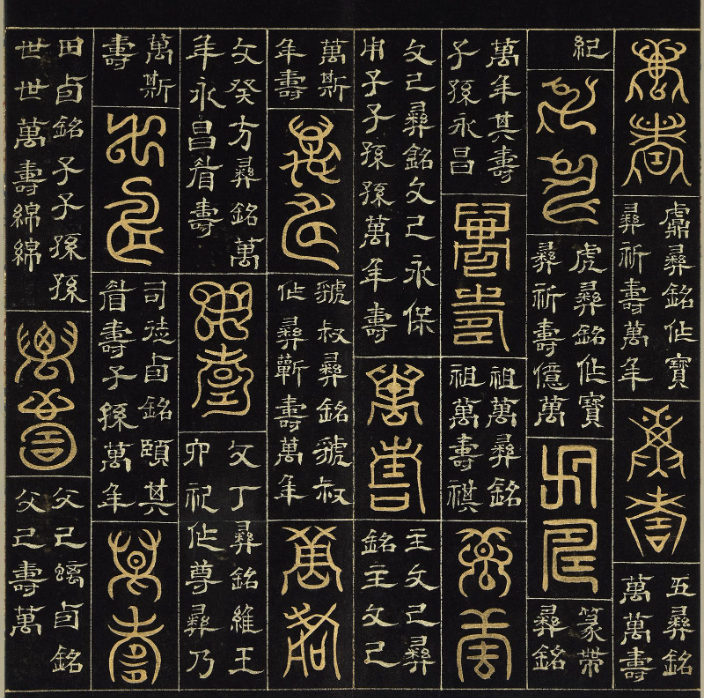 萬壽
彝銘作寶
彝祈壽萬年
萬壽
五彝銘
萬萬壽
紀
萬壽
虎彝銘作寶
彝祈壽億萬
萬壽
篆帶
彝銘
萬年其壽
子孫永昌
萬壽
祖萬彝銘
祖萬壽祺
萬壽
父己彝銘父己永保
用子子孫孫萬年壽
萬壽
主父己彝
銘主父己
萬斯
年壽
萬壽
虢叔彝銘虢叔
作彝蘄壽萬年
萬壽
父癸方彝銘萬
年永昌眉壽
萬壽
父丁彝銘維王
卯祀作尊彝乃
萬斯
壽
萬壽
司徒卣銘頤其
眉壽子孫萬年
萬壽
田卣銘子子孫孫
世世萬壽綿綿
萬壽
父己卣銘
父己壽萬